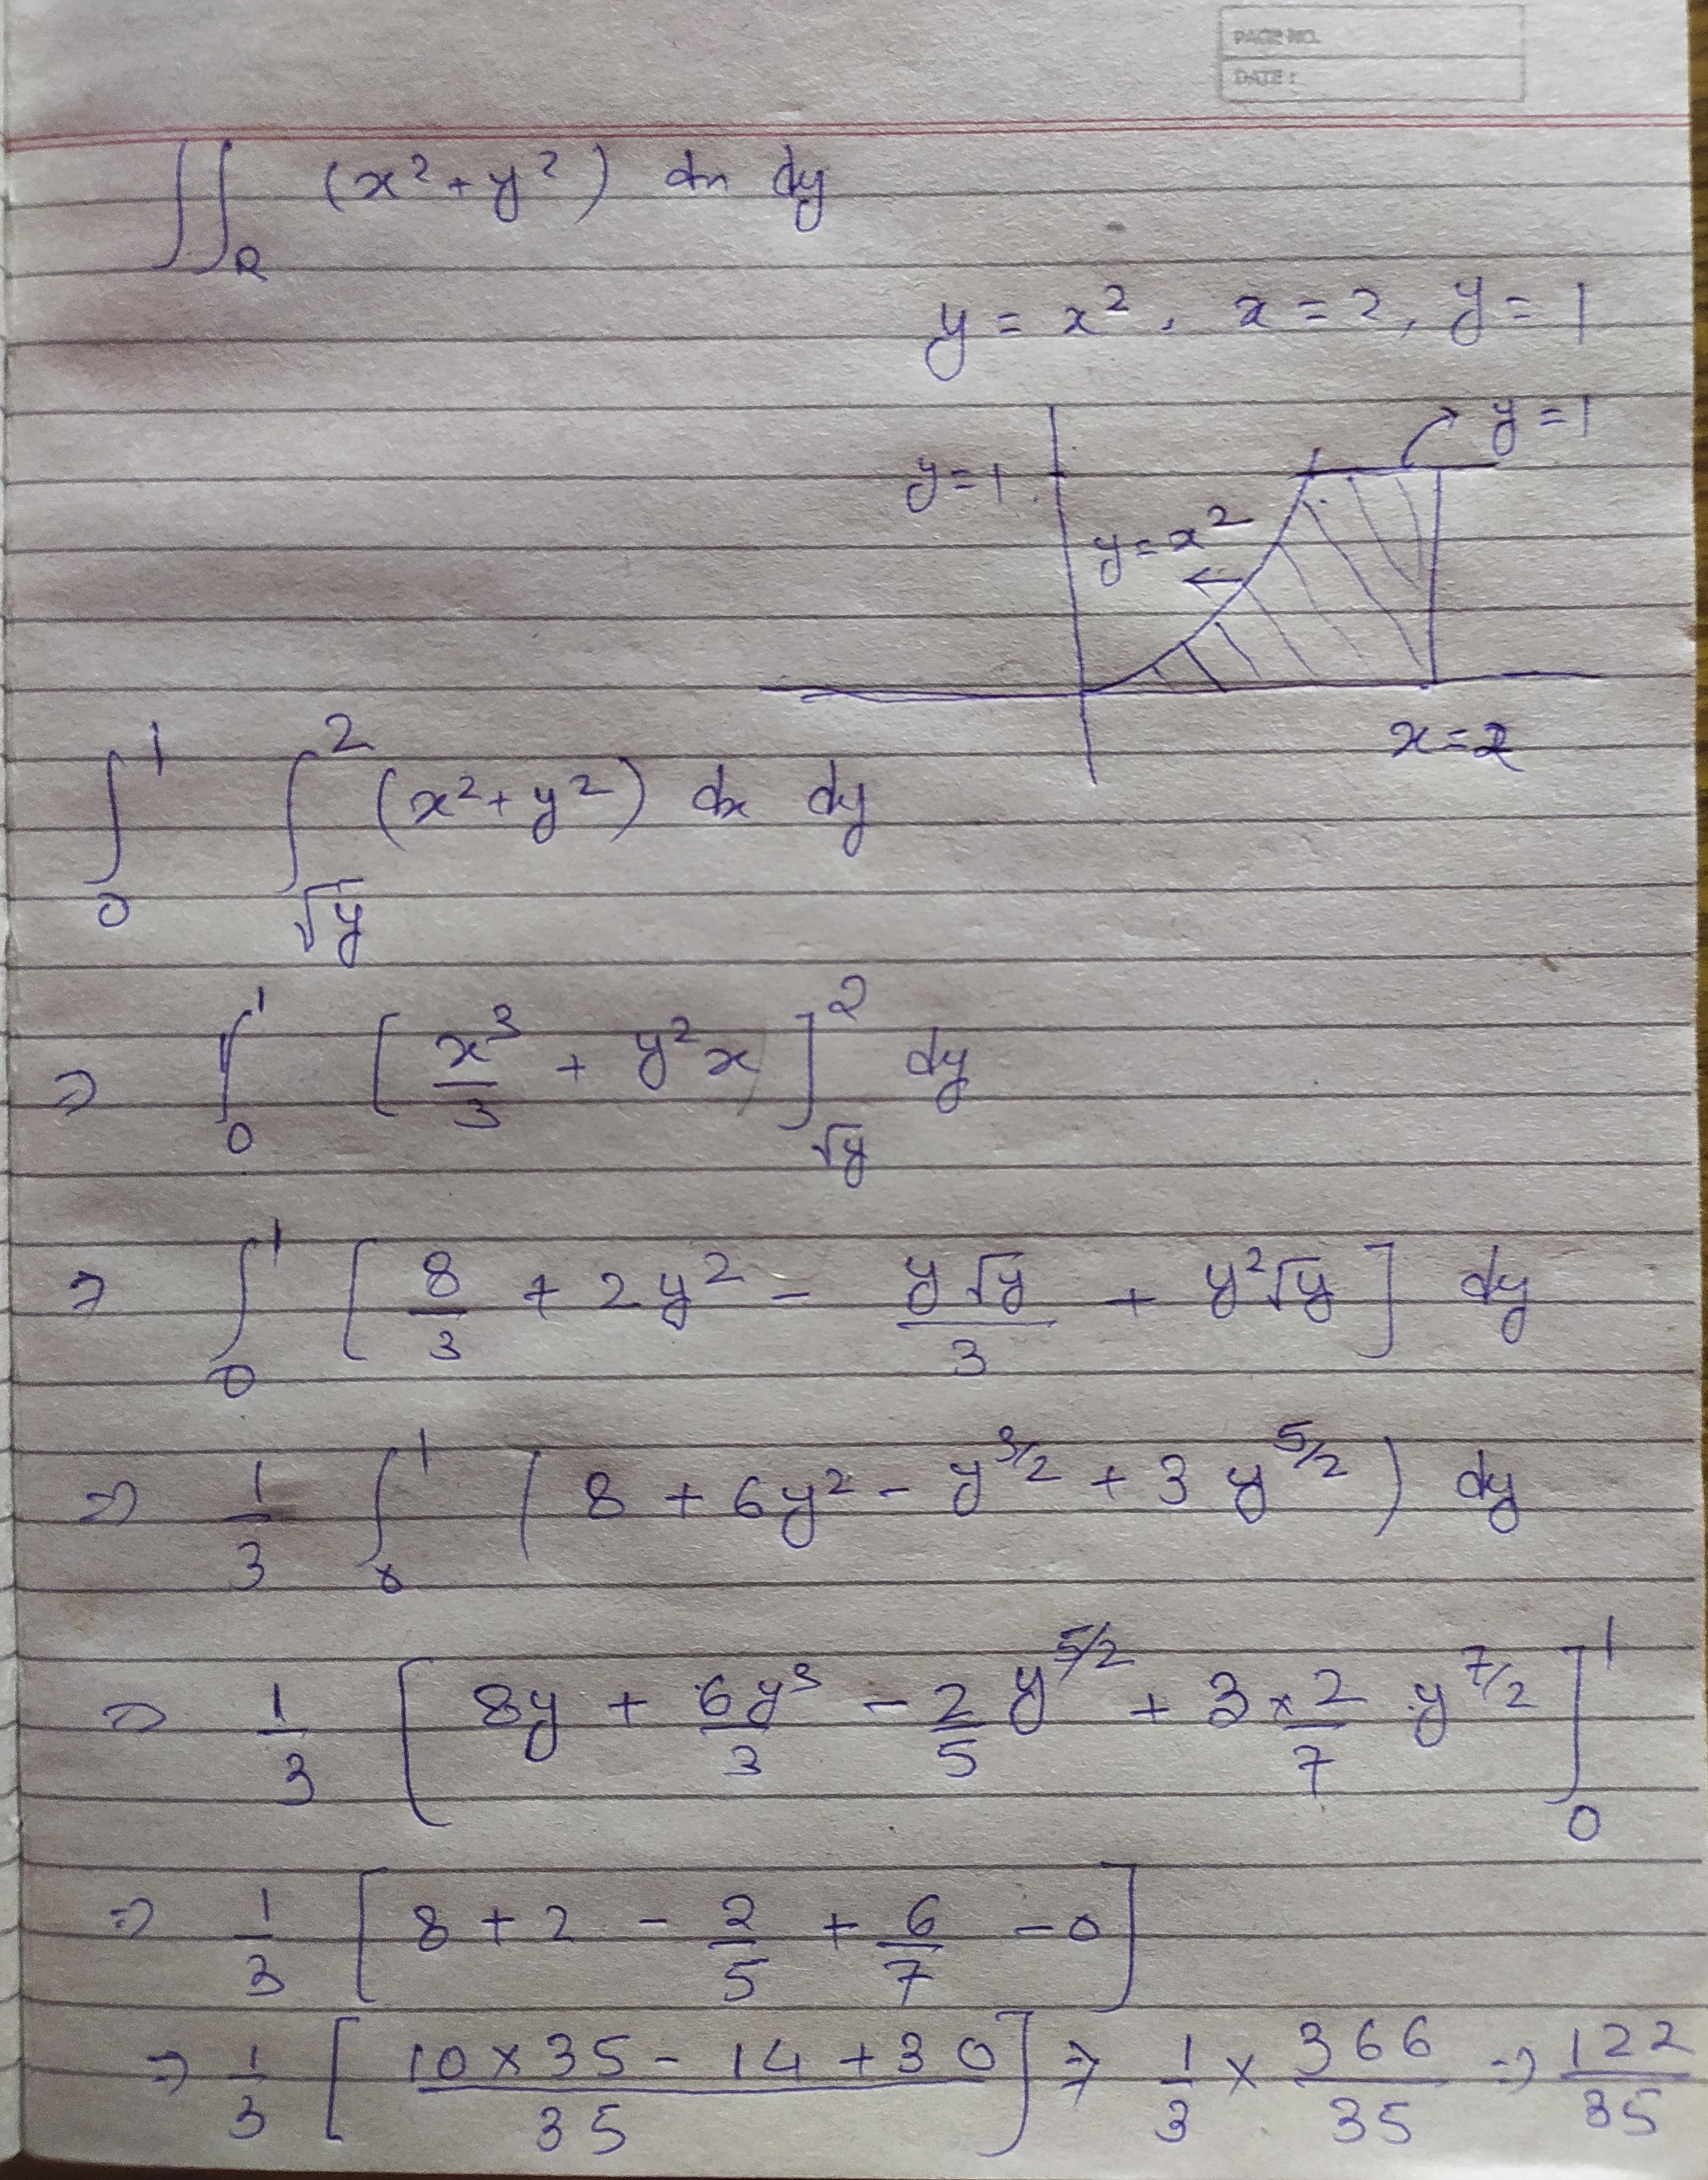 PAGE NO.
DATE :
∬_R (x² + y²) dx dy
y = x², x = 2, y = 1
y = 1
y = 1
y = x²
x = 2
∫₀¹ ∫_{√y}² (x² + y²) dx dy
⇒ ∫₀¹ [ x³/3 + y²x ]_{√y}² dy
⇒ ∫₀¹ [ 8/3 + 2y² - y√y/3 + y²√y ] dy
⇒ 1/3 ∫₀¹ ( 8 + 6y² - y^{3/2} + 3 y^{5/2} ) dy
⇒ 1/3 [ 8y + 6y³/3 - 2/5 y^{5/2} + 3 × 2/7 y^{7/2} ]₀¹
⇒ 1/3 [ 8 + 2 - 2/5 + 6/7 - 0 ]
⇒ 1/3 [ (10 × 35 - 14 + 30)/35 ] ⇒ 1/3 × 366/35 ⇒ 122/35